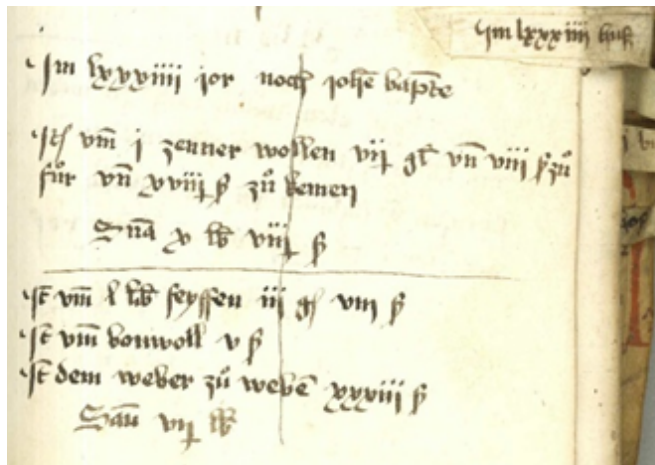 Im lxxxiiii hus
Im lxxxiiii jor noch johē bapte
Itē vm̄ j zenner wollen viij gl vn̄ viii ß zů
fůr vn̄ xviij ß zů kemen
Sūa x lb viij ß
It vm̄ l lb seyffen iii gl viii ß
It vm̄ bonwoll v ß
It dem weber zů webē xxxiii ß
Sūa vij lb